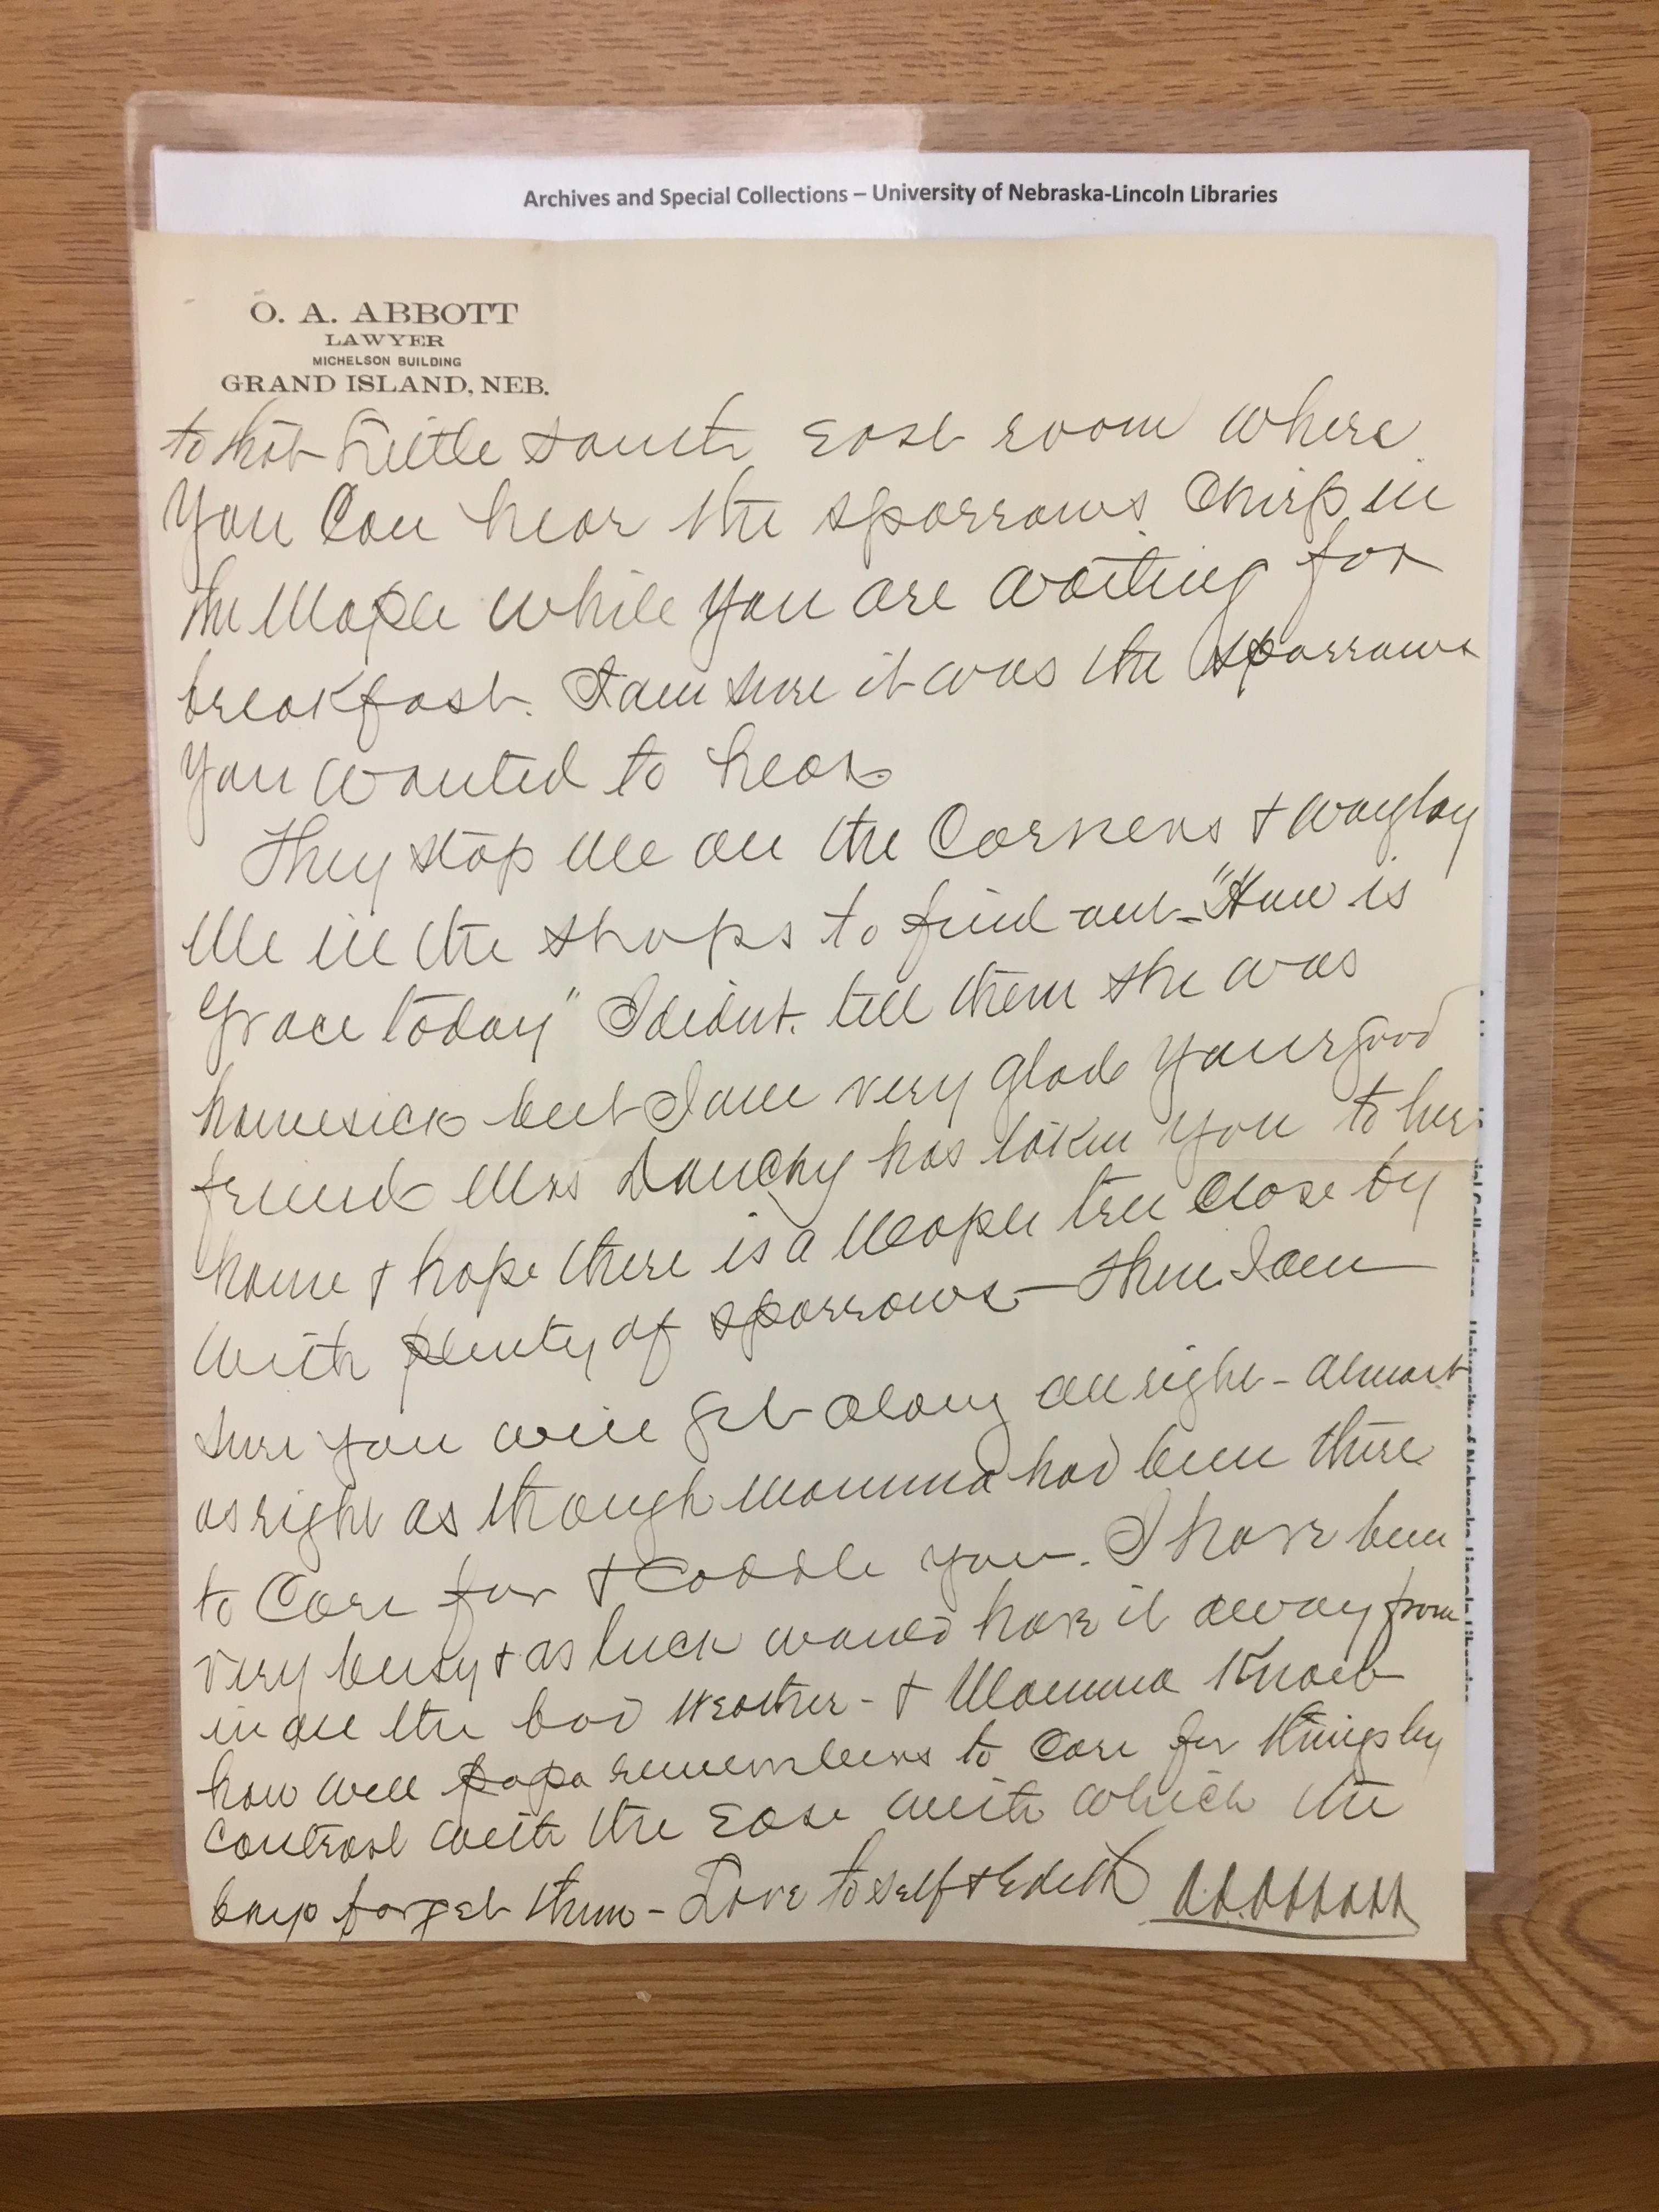 Archives and Special Collections – University of Nebraska-Lincoln Libraries
O. A. ABBOTT
LAWYER
MICHELSON BUILDING
GRAND ISLAND, NEB.
to that little South East room where
you can hear the sparrows chirp in
the Maple while you are waiting for
breakfast. I am sure it was the sparrows
you wanted to hear
They stop me on the corners & waylay
me in the shops to find out – "How is
Grace today" I didnt. tell them she was
homesick but I am very glad your good
friend Mrs has taken you to her
home & hope there is a Maple tree close by
with plenty of sparrows – then I am
sure you will get along all right – almost
as right as though Mamma had been there
to care for & coddle you. I have been
very busy & as luck would have it away from
in all the bad weather – & Mamma knows
how well papa remembers to care for things by
contrast with the ease with which the
boys forget them – Love to self & Edith